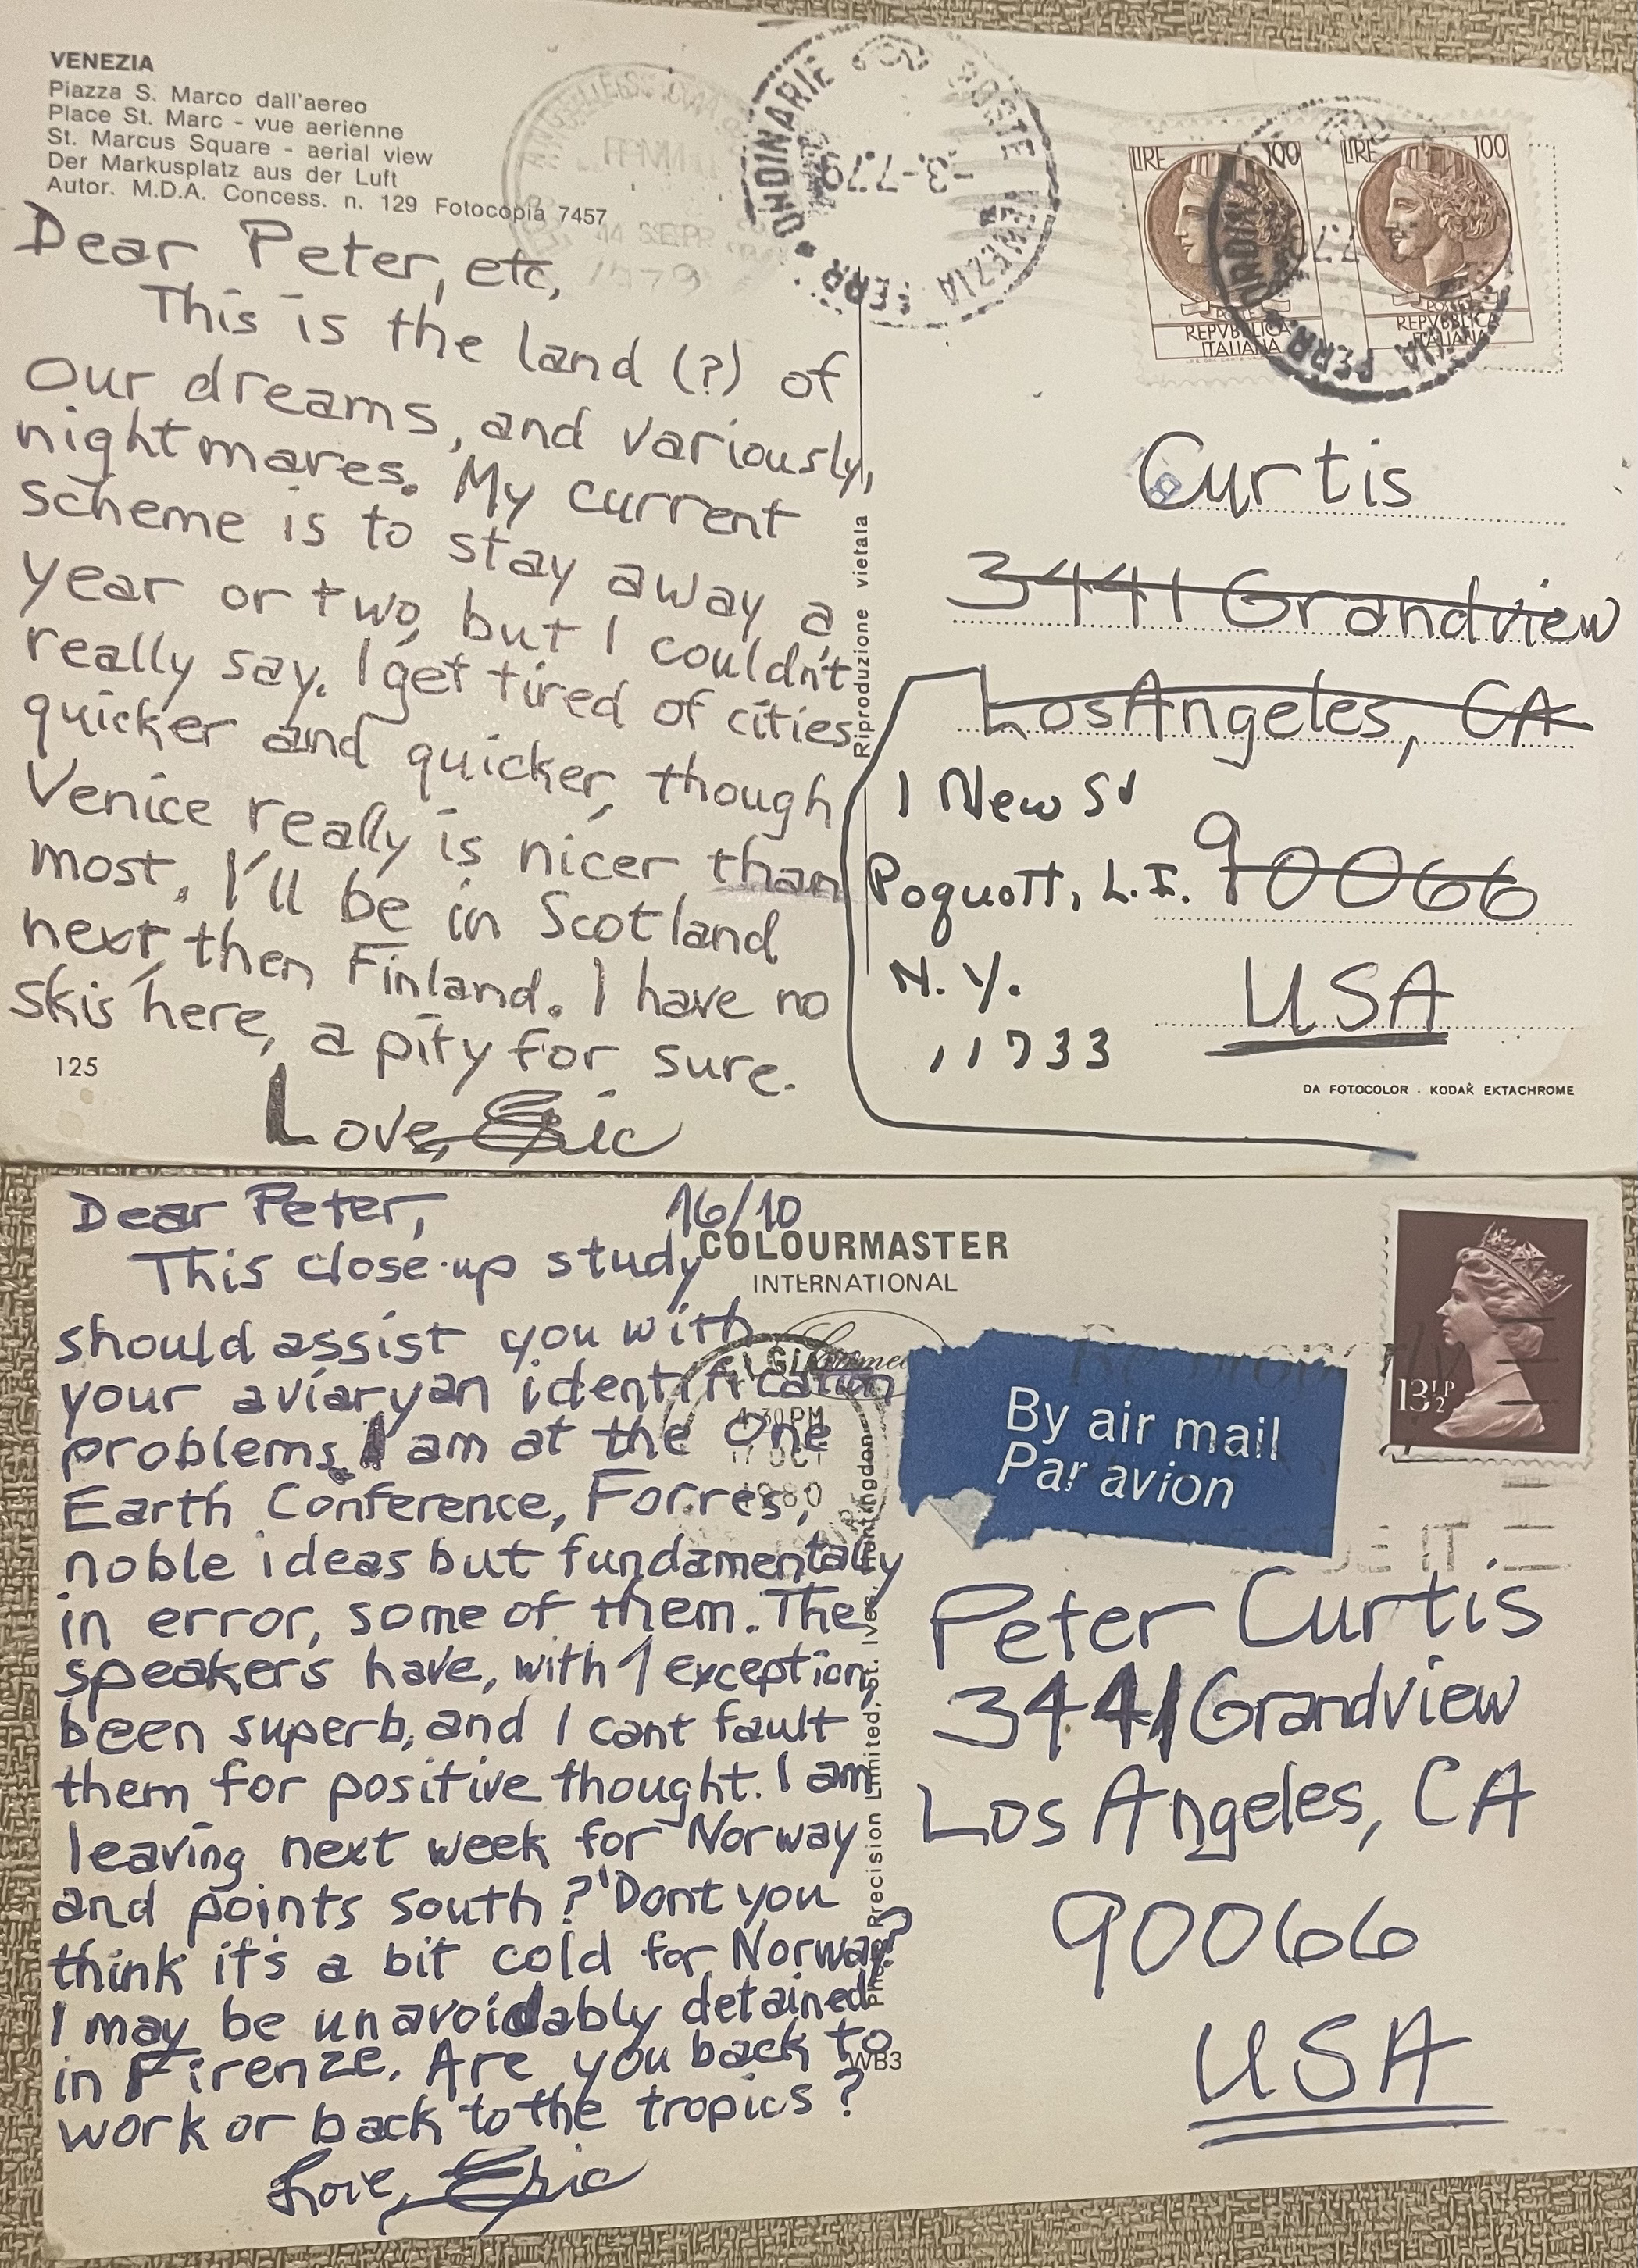 VENEZIA
Piazza S. Marco dall'aereo
Place St. Marc - vue aerienne
St. Marcus Square - aerial view
Der Markusplatz aus der Luft
Autor. M.D.A. Concess. n. 129 Fotocopia 7457
Dear Peter, etc,
This is the land (?) of
our dreams, and variously,
nightmares. My current
scheme is to stay away a
year or two, but I couldn't
really say. I get tired of cities
quicker and quicker, though
Venice really is nicer than
most. I'll be in Scotland
next, then Finland. I have no
skis here, a pity for sure.
Love, Eric
125
Riproduzione vietata
14 SEPR
1979
ORDINARIE POSTE
VENEZIA FERR
LIRE 100
POSTE
REPVBBLICA
ITALIANA
LIRE 100
POSTE
REPVBBLICA
ITALIANA
Curtis
3441 Grandview
Los Angeles, CA
90066
USA
1 New St
Poquott, L.I.
N.Y.
11733
DA FOTOCOLOR - KODAK EKTACHROME
Dear Peter, 16/10
This close-up study
should assist you with
your aviaryan identification
problems. I am at the One
Earth Conference, Forres,
noble ideas but fundamentally
in error, some of them. The
speakers have, with 1 exception,
been superb, and I cant fault
them for positive thought. I am
leaving next week for Norway
and points south? 'Dont you
think it's a bit cold for Norway?'
I may be unavoidably detained
in Firenze. Are you back to
work or back to the tropics?
Love, Eric
COLOURMASTER
INTERNATIONAL
4.30 PM
17 OCT
1980
Precision Limited, St. Ives, Huntingdon
WB3
By air mail
Par avion
13½P
Peter Curtis
3441 Grandview
Los Angeles, CA
90066
USA